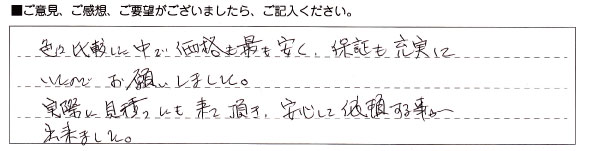 ■ご意見、ご感想、ご要望がございましたら、ご記入ください。
色々比較した中で価格も最も安く、保証も充実して
いたのでお願いしました。
実際に見積りにも来て頂き、安心して依頼する事が
出来ました。